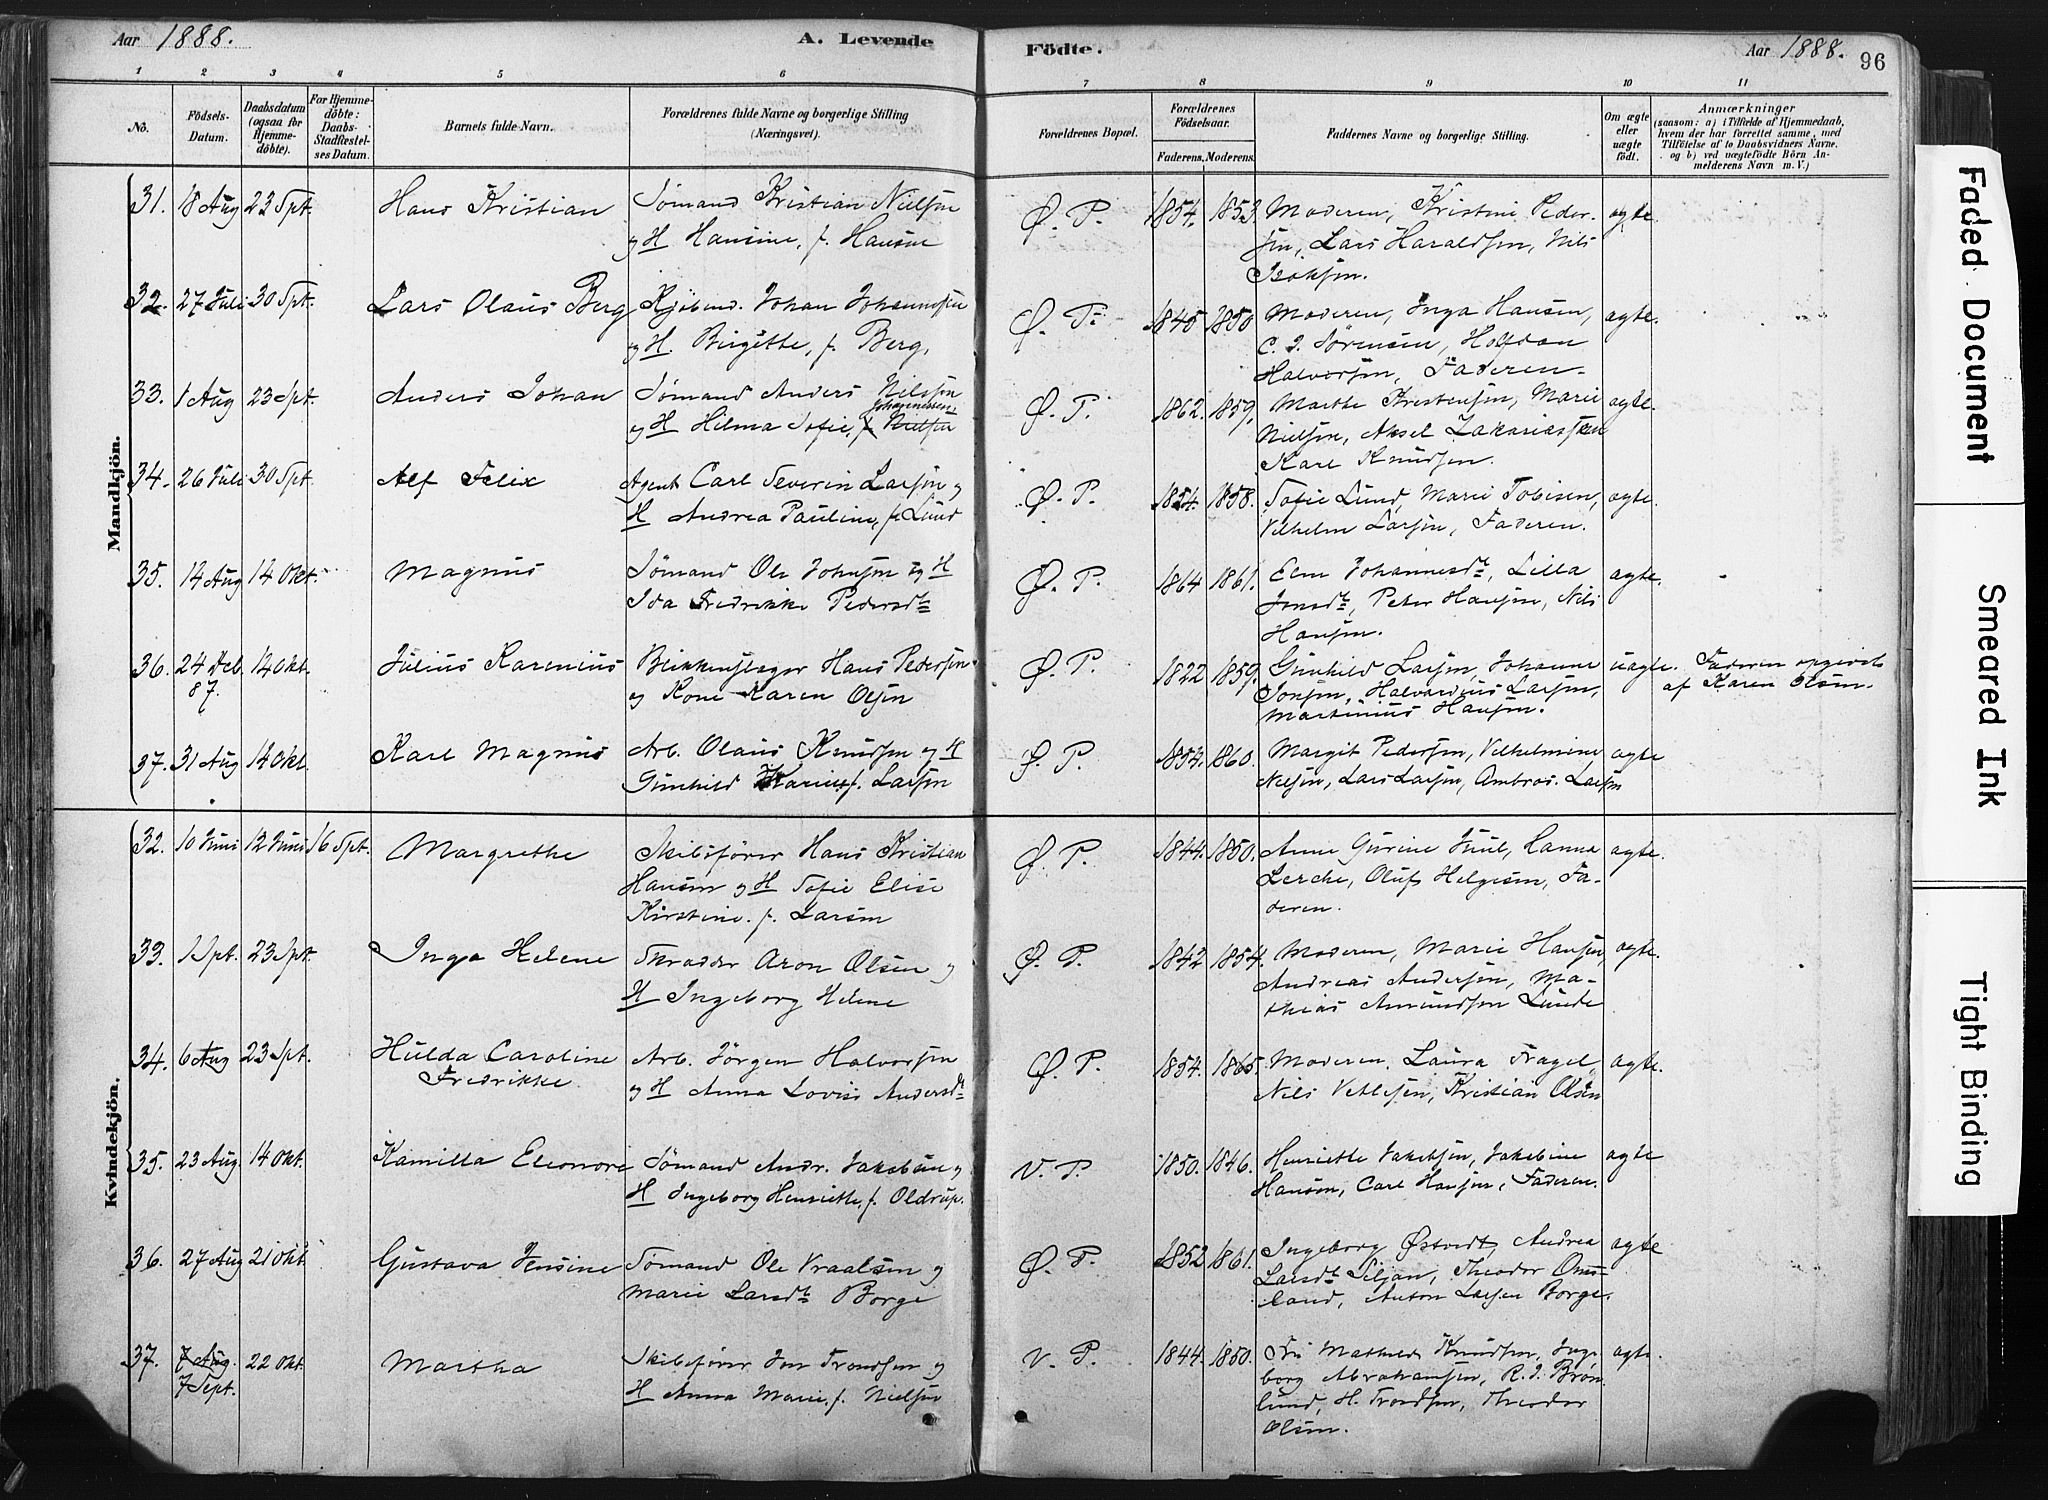 Aar 1888.
A. Levende
Födte.
Aar 1888.
96
1 2 3 4 5 6 7 8 9 10 11
No.
Födsels-
Datum.
Daabsdatum
(ogsaa for
Hjemme-
döbte).
For Hjemme-
döbte:
Daabs-
Stadfæstel-
ses Datum.
Barnets fulde Navn.
Forældrenes fulde Navne og borgerlige Stilling
(Næringsvei).
Forældrenes Bopæl.
Forældrenes
Födselsaar.
Faderens. Moderens.
Faddernes Navne og borgerlige Stilling.
Om ægte
eller
uægte
födt.
Anmærkninger
(saasom: a) i Tilfælde af Hjemmedaab,
hvem der har forrettet samme, med
Tilföielse af to Daabsvidners Navne,
og b) ved uægtefödte Börn An-
melderens Navn m. V.)
Mandkjön.
31. 18 Aug 23 Spt. Hans Kristian Sømand Kristian Nielsen Ø. P. 1854. 1853 Moderen, Kristine Peder- ægte
og H Hansine, f. Hansen sen, Lars Haraldsen, Nils
Isaksen.
32. 27 Juli 30 Spt. Lars Olaus Berg Kjøbmd. Johan Johannesen Ø. P. 1845 1850 Moderen, Inga Hansen, ægte.
og H. Birgitte, f. Berg. C. J. Sørensen, Halfdan
Halvorsen, Faderen.
33. 1 Aug 23 Spt. Anders Johan Sømand Anders Nilsen Ø. P. 1862. 1859. Marthe Kristensen, Marie ægte.
Johannessen
og H Hilma Sofie, f. Nielsen Nielsen, Aksel Zakariassen
Karl Knudsen.
34. 26 Juli 30 Spt. Alf Felix Agent Carl Severin Larsen og Ø. P. 1854. 1858. Sofie Lund, Marie Tobisen, ægte.
H Andrea Pauline, f. Lund Vilhelm Larsen, Faderen.
35. 14 Aug 14 Okt. Magnus Sømand Ole Johnsen og H Ø. P. 1864 1861. Johannesdt, Lilla ægte.
Ida Fredrikke Pedersdt Jonsdt, Peter Hansen, Nils
Hansen.
36. 24 Feb. 14 Okt. Julius Karenius Blikkenslager Hans Pedersen Ø. P. 1822 1859. Gunhild Larsen, Johanne uægte. Faderen opgivet
87. og Kone Karen Olsen Jonsen, Halvardius Larsen, af Karen Olsen.
Martinius Hansen.
37. 31 Aug 14 Okt. Karl Magnus Arb. Olaus Knudsen og H Ø. P. 1854. 1860. Margit Pedersen, Vilhelmine ægte
Gunhild Karine f. Larsen Nilsen, Lars Larsen, Ambros. Larsen
Kvindekjön.
32. 10 Juni 12 Juni 16 Spt. Margrethe Skibsfører Hans Kristian Ø. P. 1844. 1850. Anne Gurine Juul, Hanna ægte.
Hansen og H Sofie Elise Lerche, Oluf Helgesen, Fa-
Kirstine. f. Larsen deren.
33. 1 Spt. 23 Spt. Inga Helene Skrædder Aron Olsen og Ø. P. 1842 1854. Moderen, Marie Hansen, ægte.
H Ingeborg Helene Andreas Andersen, Ma-
thias Amundsen Lunde
34. 6 Aug 23 Spt. Hulda Caroline Arb. Jørgen Halvorsen Ø. P. 1854. 1865. Moderen, Laura Fragel, ægte.
Fredrikke og H Anna Lovise Andersdt Nils Vetlesen, Kristian Olsen
35. 23 Aug. 14 Okt. Kamilla Eleonore Sømand Andr. Jakobsen og V. P. 1850. 1846. Henriette Jakobsen, Jakobine ægte
H Ingeborg Henriette, f. Oldrup. Hansen, Carl Hansen, Faderen.
36. 27 Aug 21 Okt. Gustava Jensine Sømand Ole Vraalsen og Ø. P. 1852 1861. Ingeborg Østvedt, Andrea ægte
Marie Larsdt Borge Larsdt Siljan, Theodor Oms-
land, Anton Larsen Borge.
37. 7 Aug. 22 Okt. Martha Skibsfører Jon Trondsen og V. P. 1844. 1850. Frk Mathilde Knudsen, Inge- ægte.
7 Sept. H Anna Marie, f. Nielsen borg Abrahamsen, R. J. Brøn-
lund, H. Trondsen, Theodor
Olsen.
Faded Document
Smeared Ink
Tight Binding